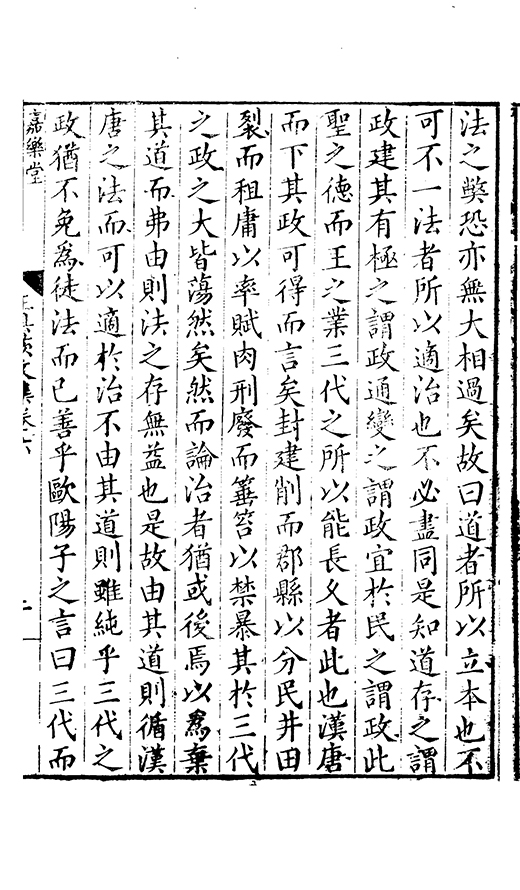 法之獘恐亦無大相過矣故曰道者所以立本也不
可不一法者所以適治也不必盡同是知道存之謂
政建其有極之謂政通變之謂政宜於民之謂政此
聖之德而王之業三代之所以能長久者此也漢唐
而下其政可得而言矣封建削而郡縣以分民井田
裂而租庸以率賦肉刑廢而箠笞以禁暴其於三代
之政之大皆蕩然矣然而論治者猶或後焉以爲棄
其道而弗由則法之存無益也是故由其道則循漢
唐之法而可以適於治不由其道則雖純乎三代之
政猶不免爲徒法而已善乎歐陽子之言曰三代而
嘉樂堂
文集卷六